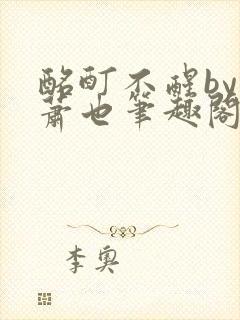 酩酊不醒by
萧也笔趣阁
李奥